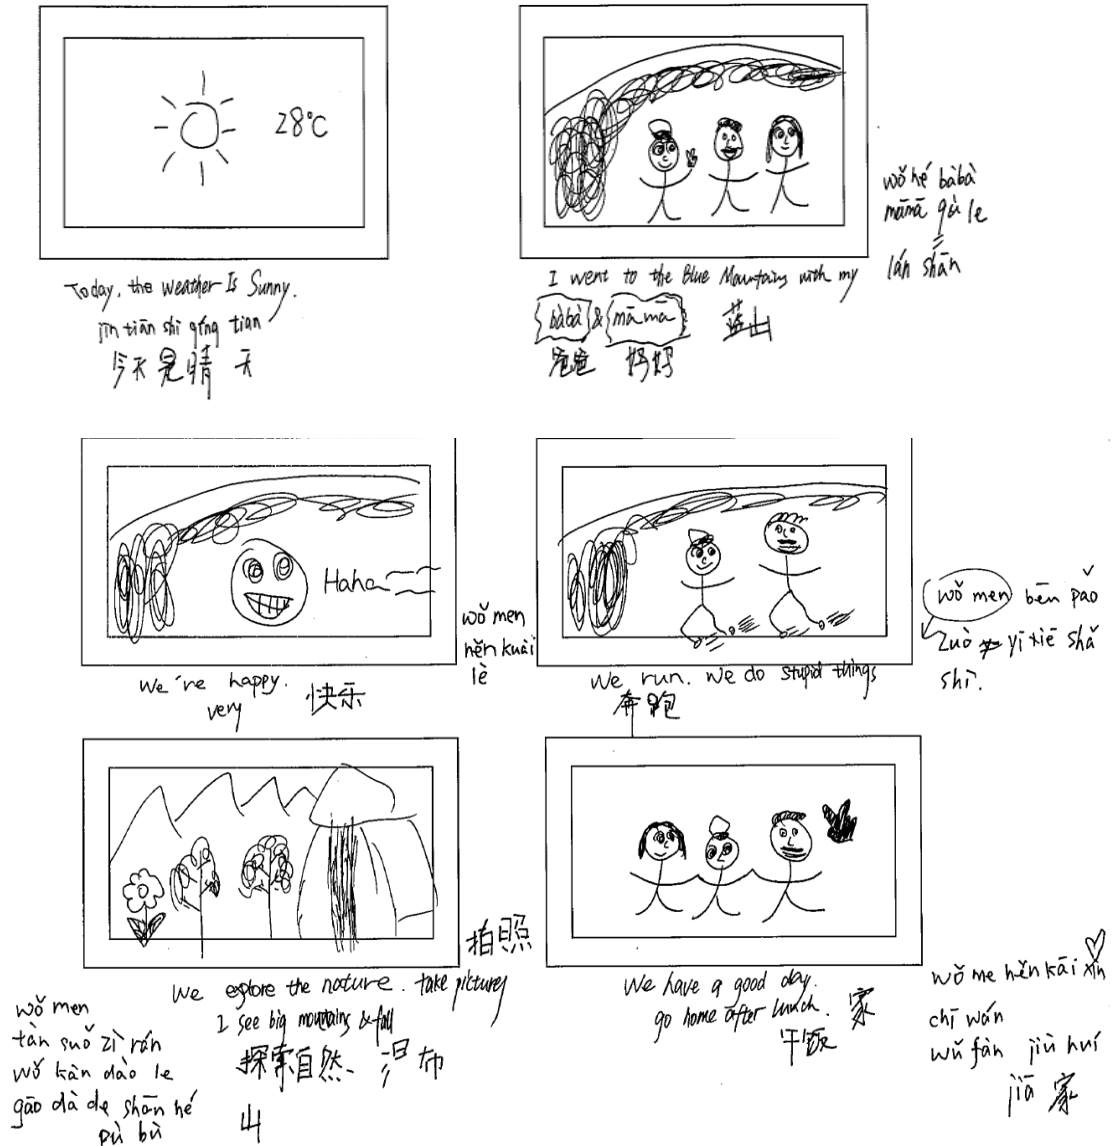 28°C
Today, the weather Is Sunny.
jīn tiān shì qíng tian
今天是晴天
wǒ hé bàbà
māmā qù le
lán shān
I went to the Blue Mountains with my
bàbà & māmā 蓝山
爸爸 妈妈
Haha
We're happy.
very
快乐
wǒ men
hěn kuài
lè
We run. We do stupid things
奔跑
wǒ men bēn pǎo
zuò yī xiē shǎ
shì.
拍照
We explore the nature. take pictures
I see big mountains & fall
探索自然 布
山
wǒ men
tàn suǒ zì rán
wǒ kàn dào le
gāo dà de shān hé
pù bù
We have a good day.
go home after lunch. 家
午饭
wǒ me hěn kāi xīn
chī wán
wǔ fàn jiù huí
jiā 家